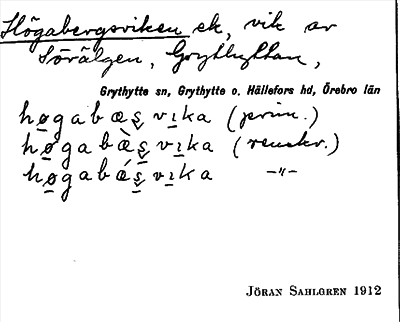 Högabergsviken ek, vik av
Sörälgen, Grythyttan,
Grythytte sn, Grythytte o. Hällefors hd, Örebro län
hø̱gabæş̌vi̱ka (prim.)
hø̱gabæ̀ş̌vi̱ka (renskr.)
hø̱gabǽş̌vi̱ka —"—
JÖRAN SAHLGREN 1912